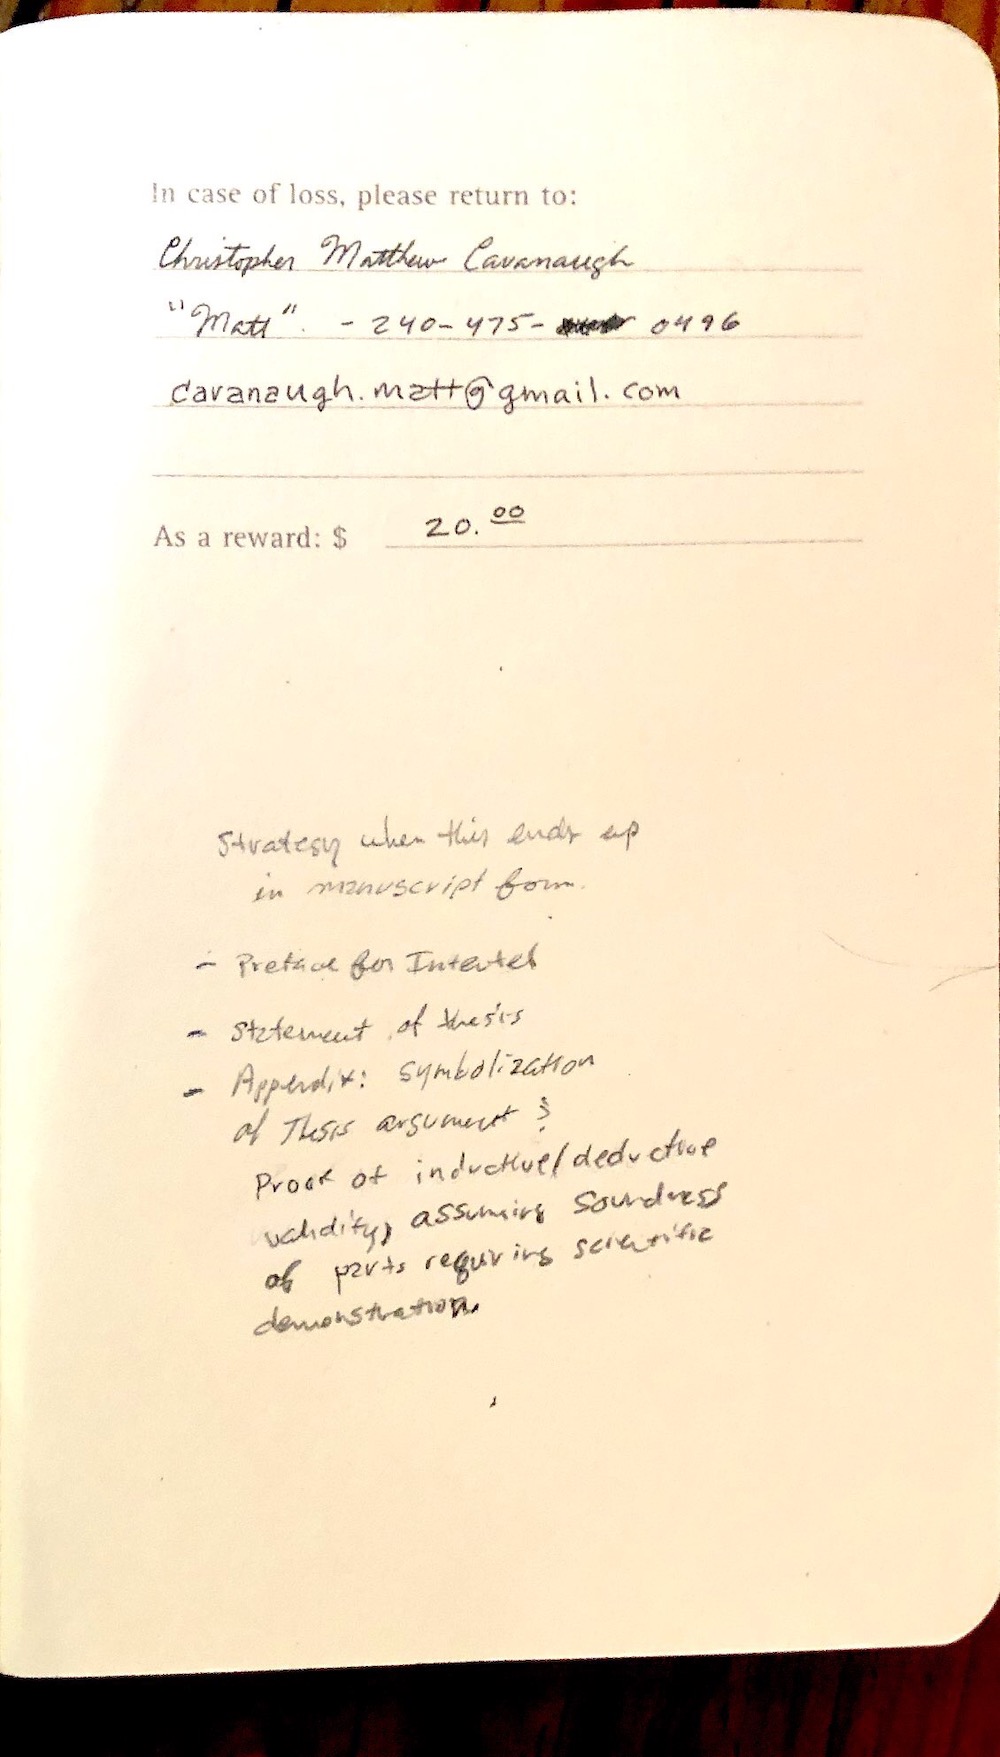 In case of loss, please return to:
Christopher Matthew Cavanaugh
"Matt". - 240-475- 0496
cavanaugh.matt@gmail.com
As a reward: $ 20.00
Strategy when this ends up
in manuscript form.
- Preface for Intertel
- Statement of thesis
- Appendix: Symbolization
of Thesis argument &
Proof of inductive/deductive
validity, assuming soundness
of parts requiring scientific
demonstration.